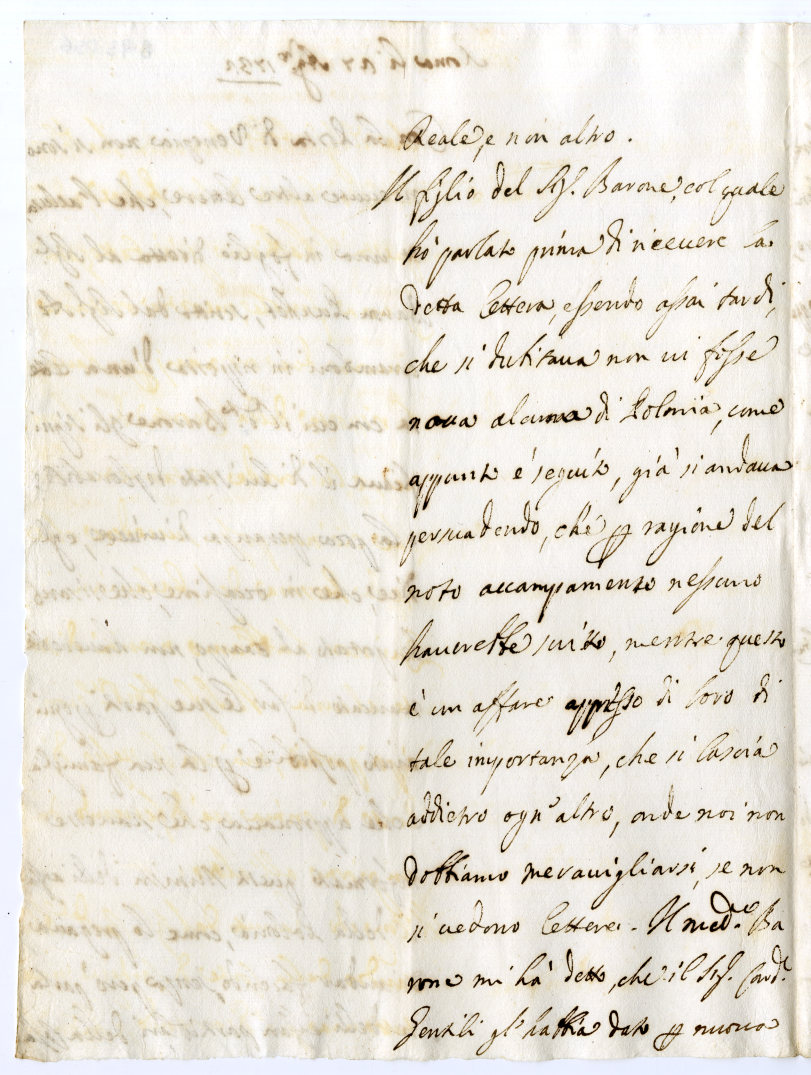 Reale, e non altro.
Il figlio del Sig.r Barone, col quale
hò parlato prima di riceuere la
detta lettera, essendo assai tardi,
che si dubitaua non ui fosse
noua alcuna di Polonia, come
appunto è seguito, già si andaua
persuadendo, che p ragione del
noto accampamento nessuno
hauerebbe scritto, mentre questo
è un affare appresso di loro di
tale importanza, che si lascia
addietro ogn'altro, onde noi non
dobbiamo merauigliarsi, se non
si uedono lettere. Il med.o Ba
rone mi hà detto, che il Sig.r Card.l
Gentili gl'habbia dato p nuoua